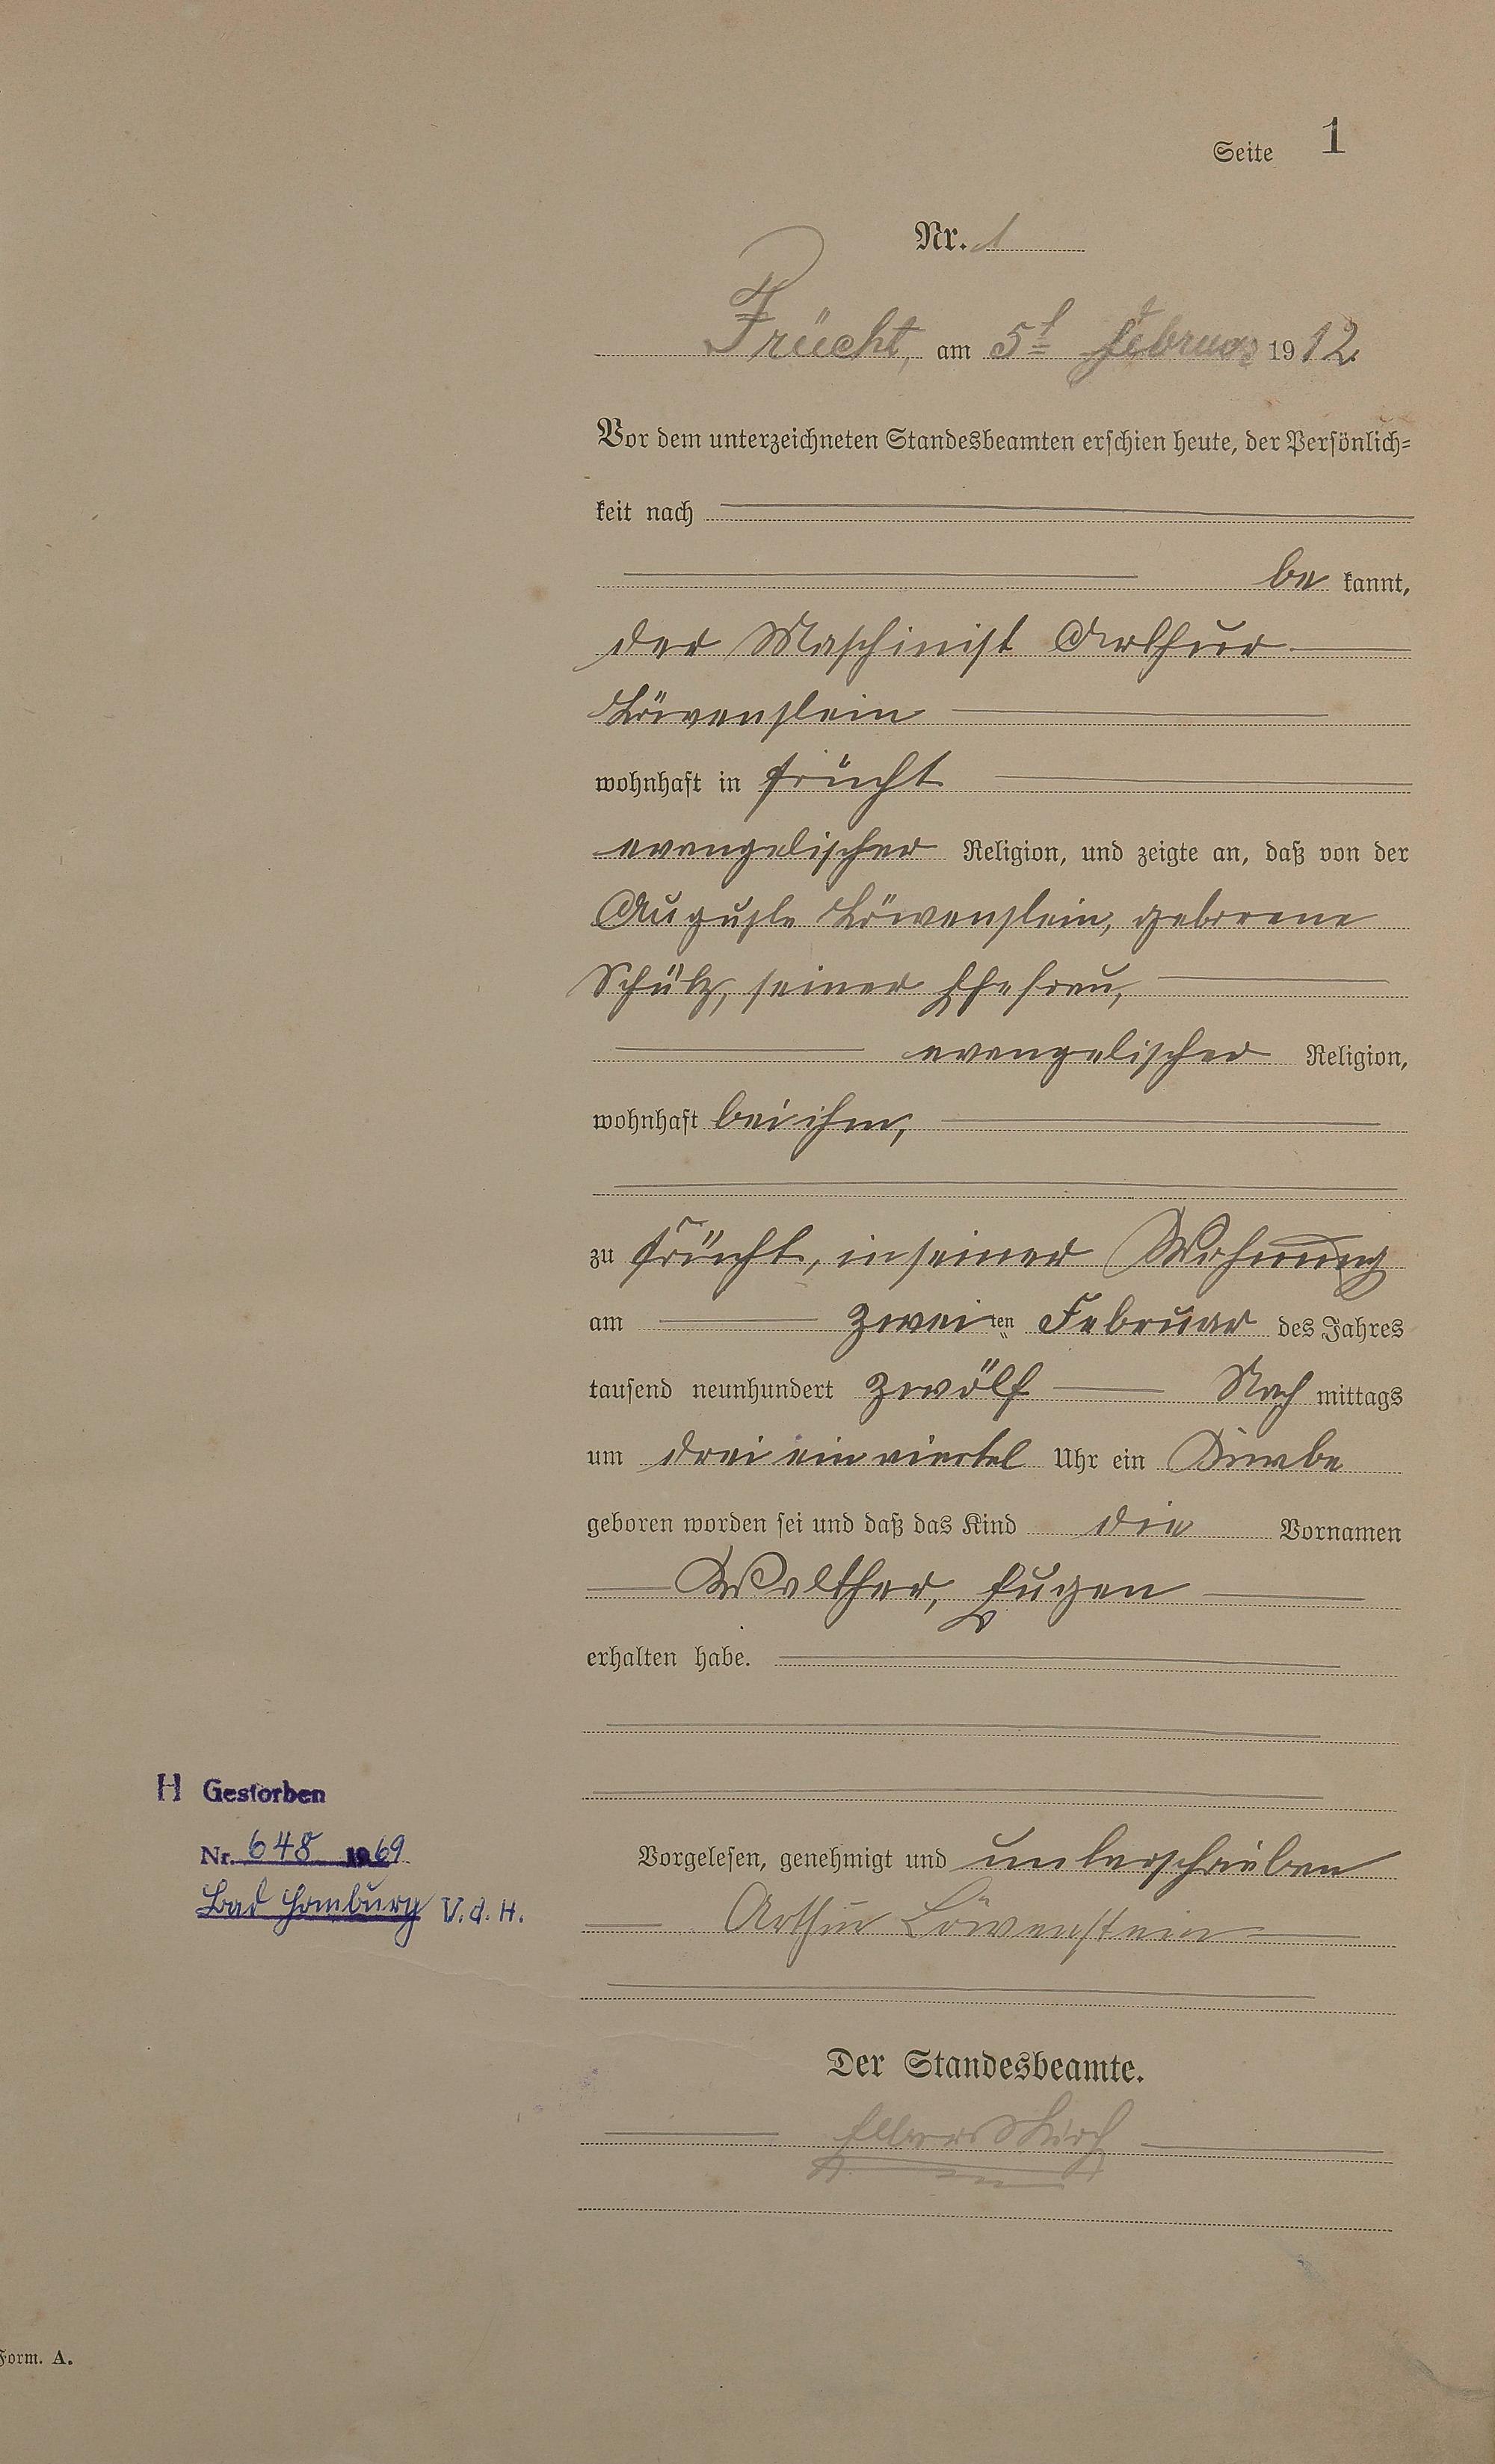 Seite 1
Nr. 1
Frücht, am 5t Februar 1912
Vor dem unterzeichneten Standesbeamten erschien heute, der Persönlich=
keit nach
be kannt,
der Maschinist Arthur
Löwenstein
wohnhaft in Frücht
evangelischer Religion, und zeigte an, daß von der
Auguste Löwenstein, geborene
Schütz, seiner Ehefrau,
evangelischer Religion,
wohnhaft bei ihm,
zu Frücht, in seiner Wohnung
am zweiten Februar des Jahres
tausend neunhundert zwölf Nach mittags
um drei ein viertel Uhr ein Knabe
geboren worden sei und daß das Kind die Vornamen
Walther, Eugen
erhalten habe.
H Gestorben
Nr. 648 1969
Bad Homburg V.d.H.
Vorgelesen, genehmigt und unterschrieben
Arthur Löwenstein
Der Standesbeamte.
Form. A.